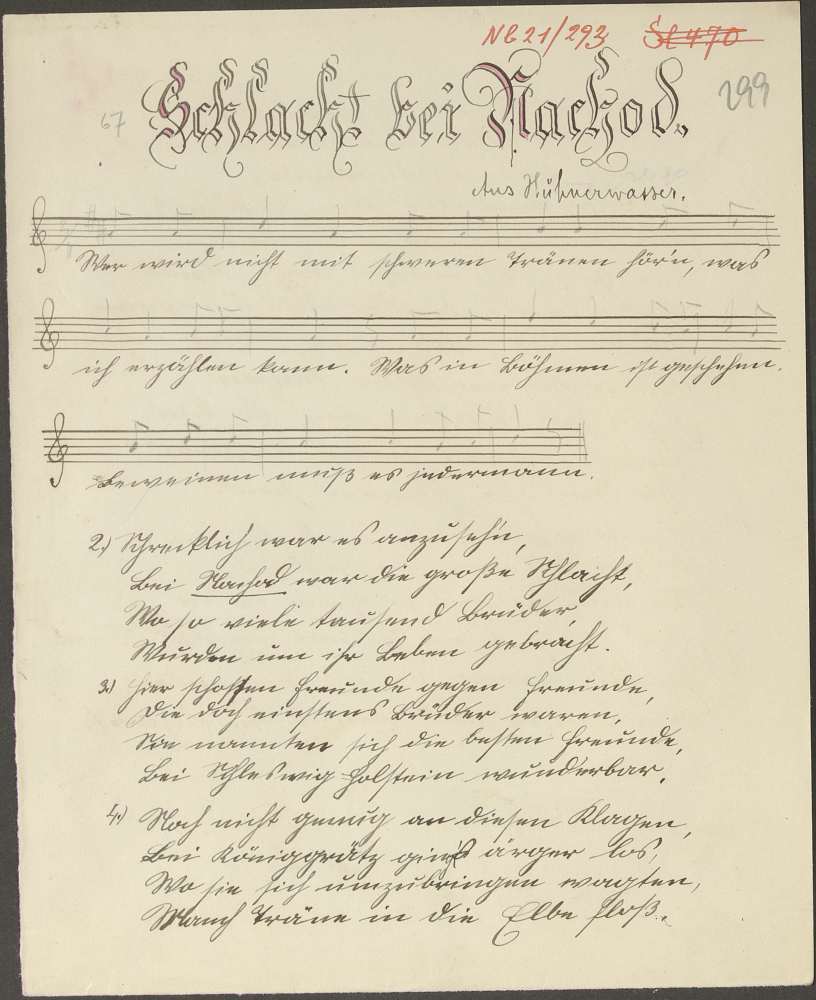 NE 21/293 St 470
299
67
Schlacht bei Nachod.
Aus Hühnerwasser.
Wer wird nicht mit schweren Tränen hör'n, was
ich erzählen kann. Was in Böhmen ist geschehen.
Beweinen muß es jedermann.
2.) Schrecklich war es anzuseh'n,
Bei Nachod war die große Schlacht,
Wo so viele tausend Brüder,
Wurden um ihr Leben gebracht.
3.) Hier schossen Freunde gegen Freunde,
Die doch einstens Brüder waren,
Sie nannten sich die besten Freunde,
Bei Schleswig Holstein wunderbar.
4.) Noch nicht genug an diesen Klagen,
Bei Königgrätz ging's ärger los,
Wo sie sich umzubringen wagten,
Manch Träne in die Elbe floß.